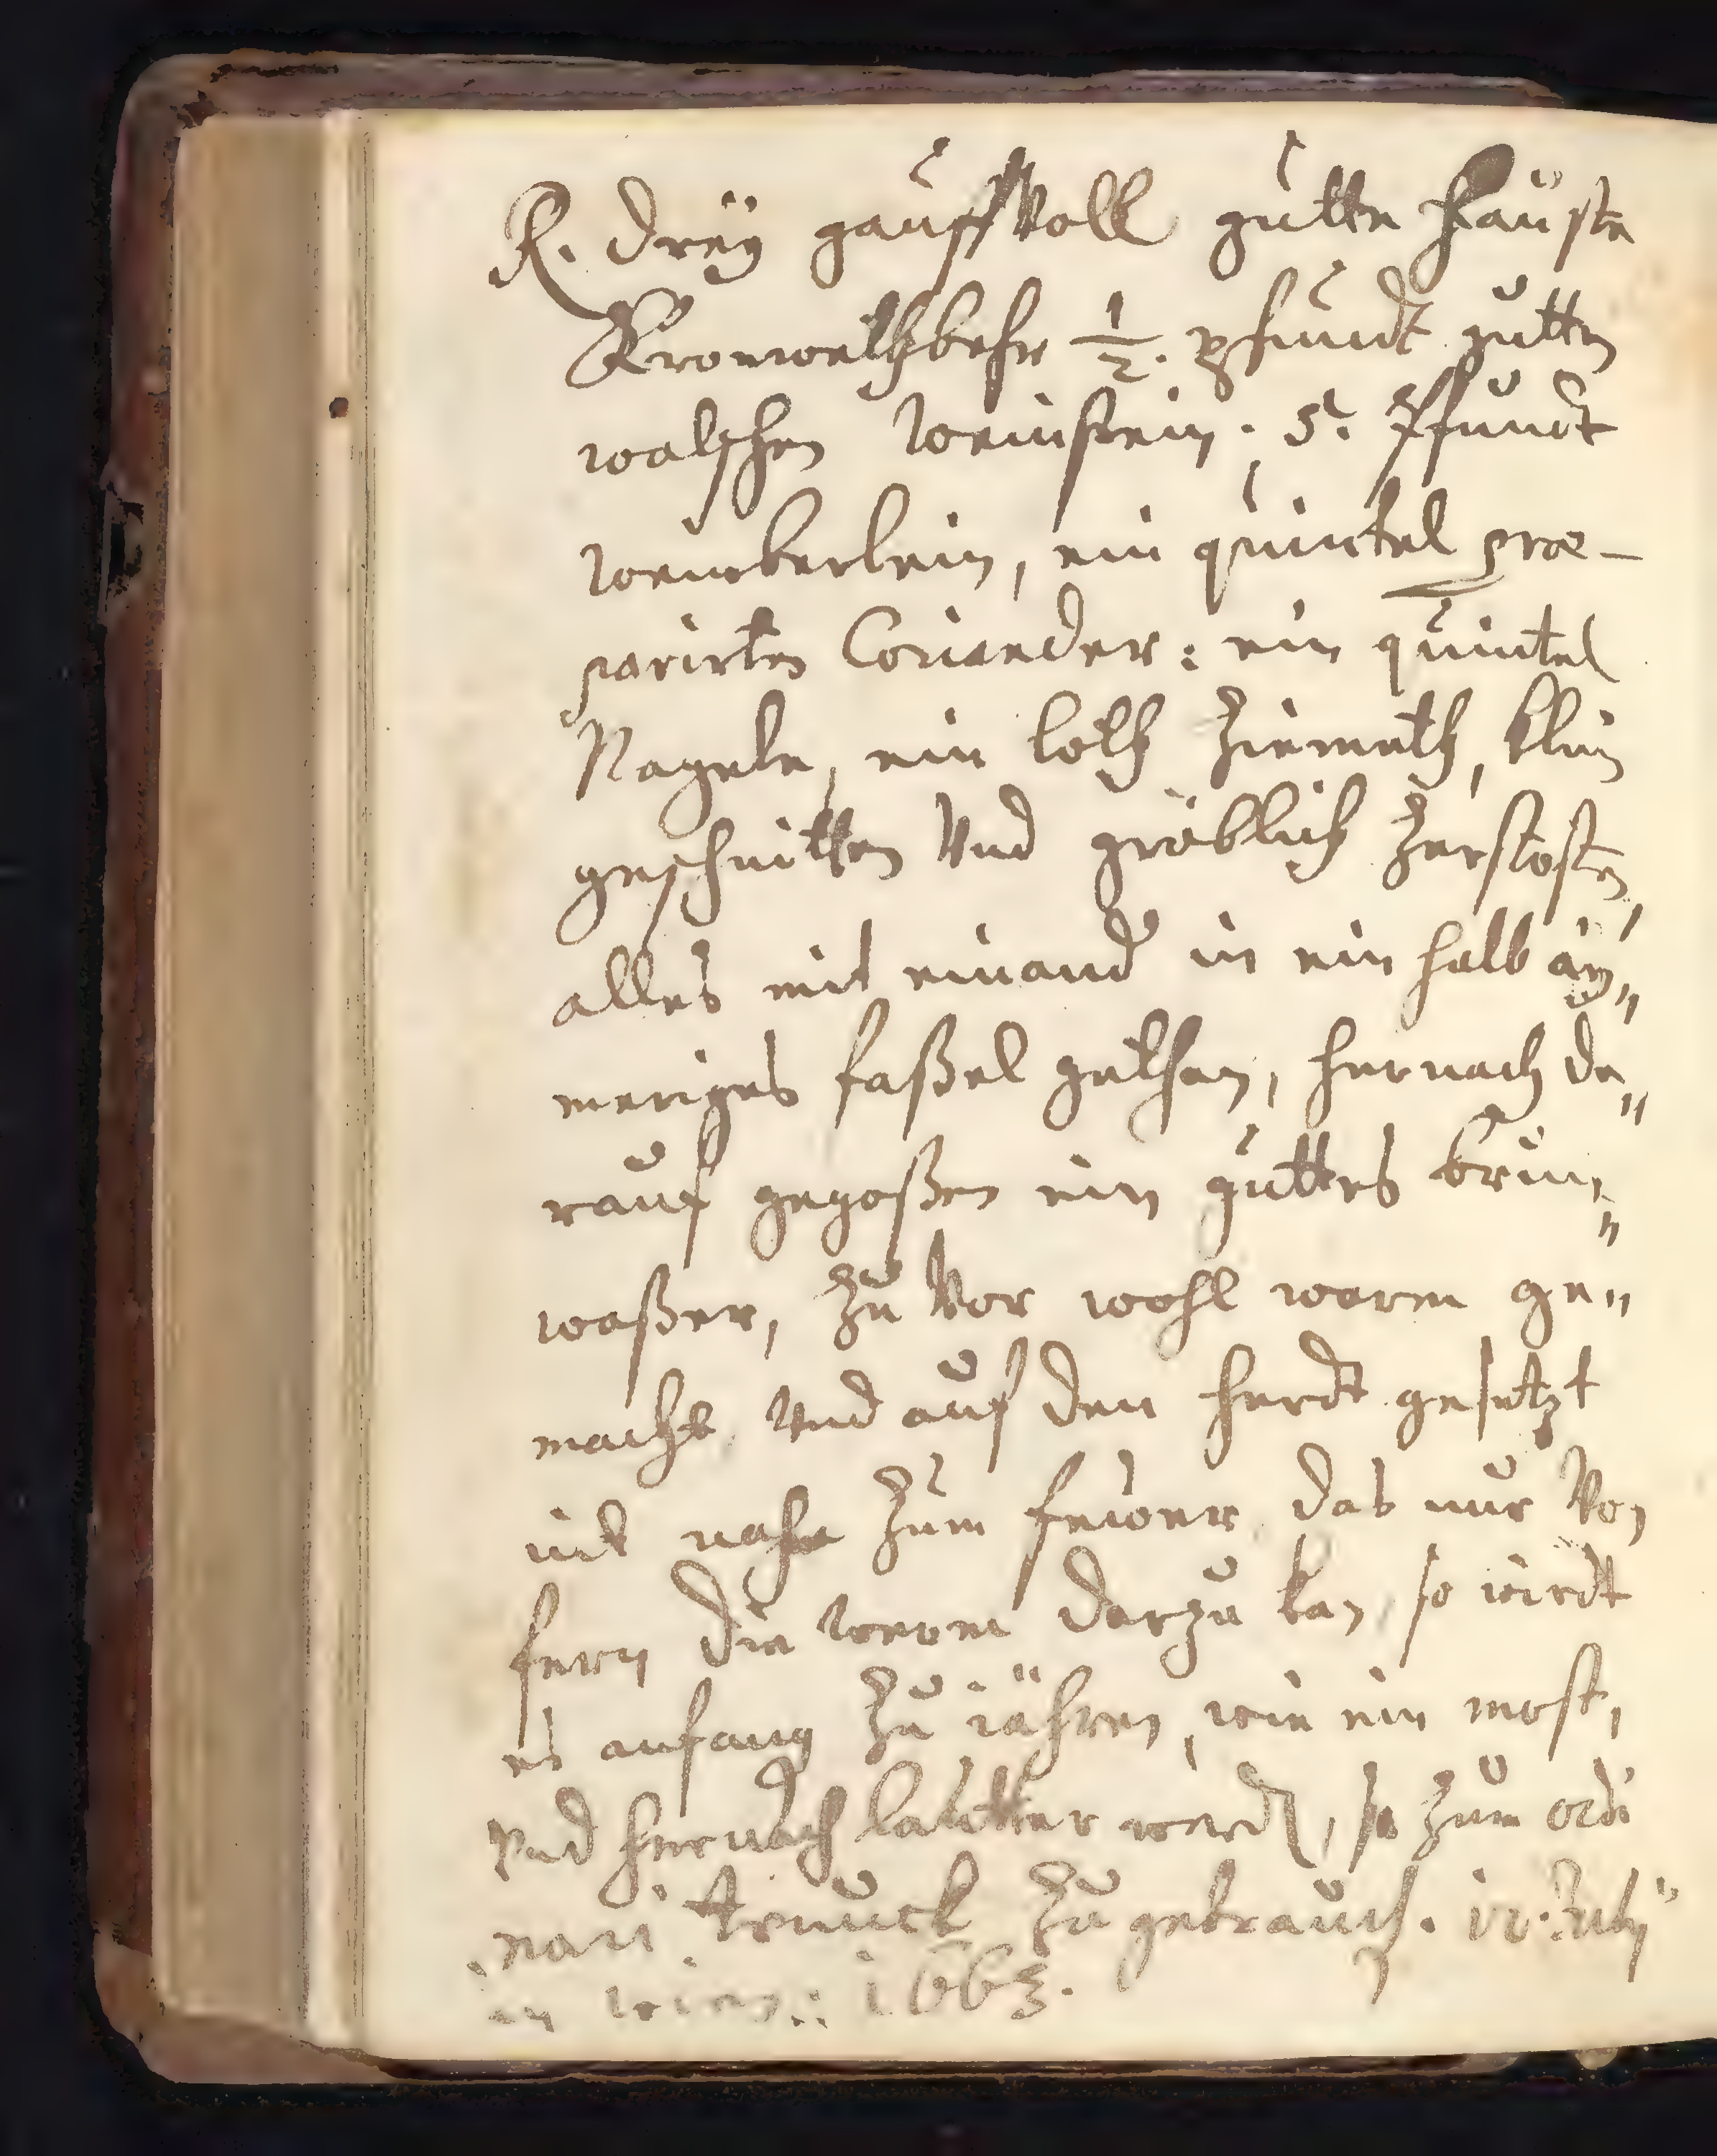 R. dreÿ gauffVoll gutte faüste
Kronwethbehr 1/2. pfundt gutten
walschen Weinstein. 5. Pfundt
Weinberlein, ein quintel præ-
parirten Coriander: ein quintel
Nagele, ein loth Ziemeth, klein
geschnitten Vnd gröblich Zerstossen,
alles mit einand in ein halb äÿ"
meriges faßel gethan, hernach da"
rauf gegoßen ein guttes brun"
waßer, Zu Vor wohl warm ge"
macht Vnd auf den herdt gesetzt
nit nahe Zum fewer das nur Von
fern die werme darzu kan, so wirdt
es anfang Zu iähren, wie ein most,
Vnd hernach lautter werd, so Zum ordi
nari Trunck Zu gebrauch. Julÿ
1663.